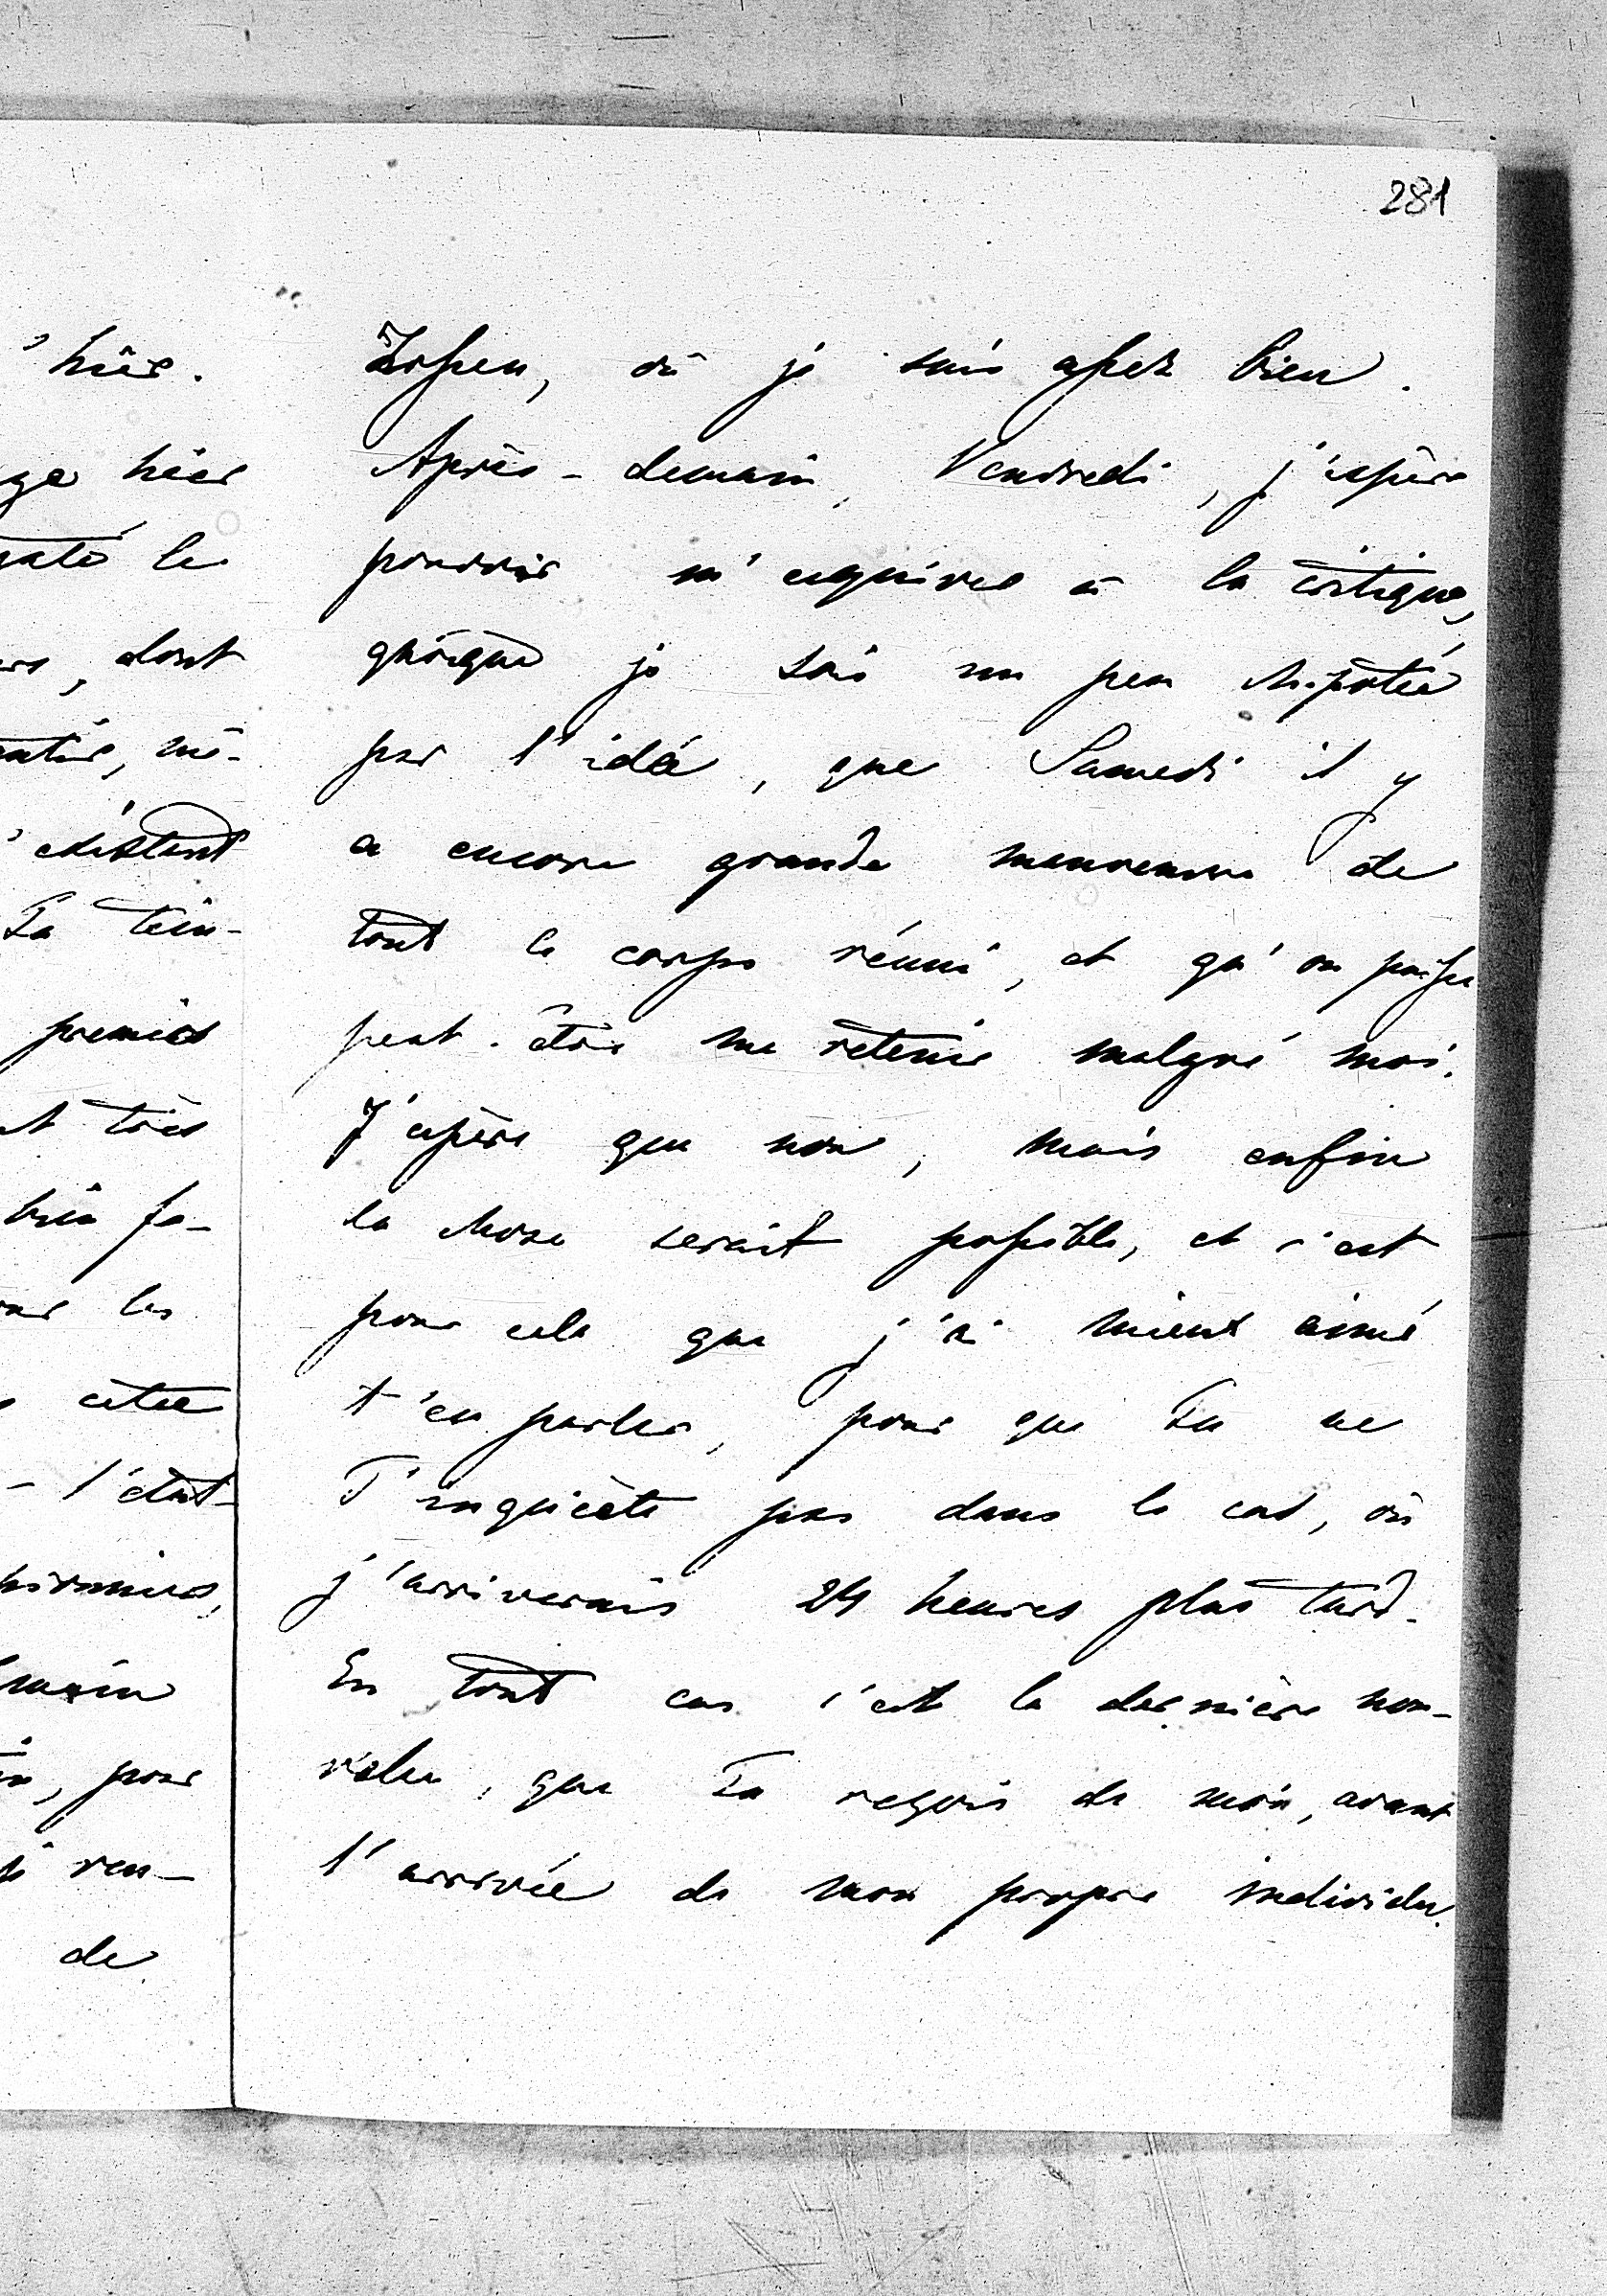 281
où je suis assez bien.
Après-demain, Vendredi, j'espère
pouvoir m'esquiver à la
quoique je sois un peu
par l'idée, que Samedi il y
a encore grande manoeuvre de
tout le corps réuni, et qu'on puisse
peut-être me retenir malgré moi.
J'espère que non, mais enfin
la chose serait possible, et c'est
pour cela que j'ai mieux aimé
t'en parler, pour que Tu ne
T'inquiète pas dans le cas, où
j'arriverais 24 heures plus tard.
En tout cas c'est la dernière nou-
velle, que Tu reçois de moi, avant
l'arrivée de mon propre individu.
hier.
hier
le
dont
mê-
existant
Ta
premier
très
fa-
les
l'état-
pour
ren-
de